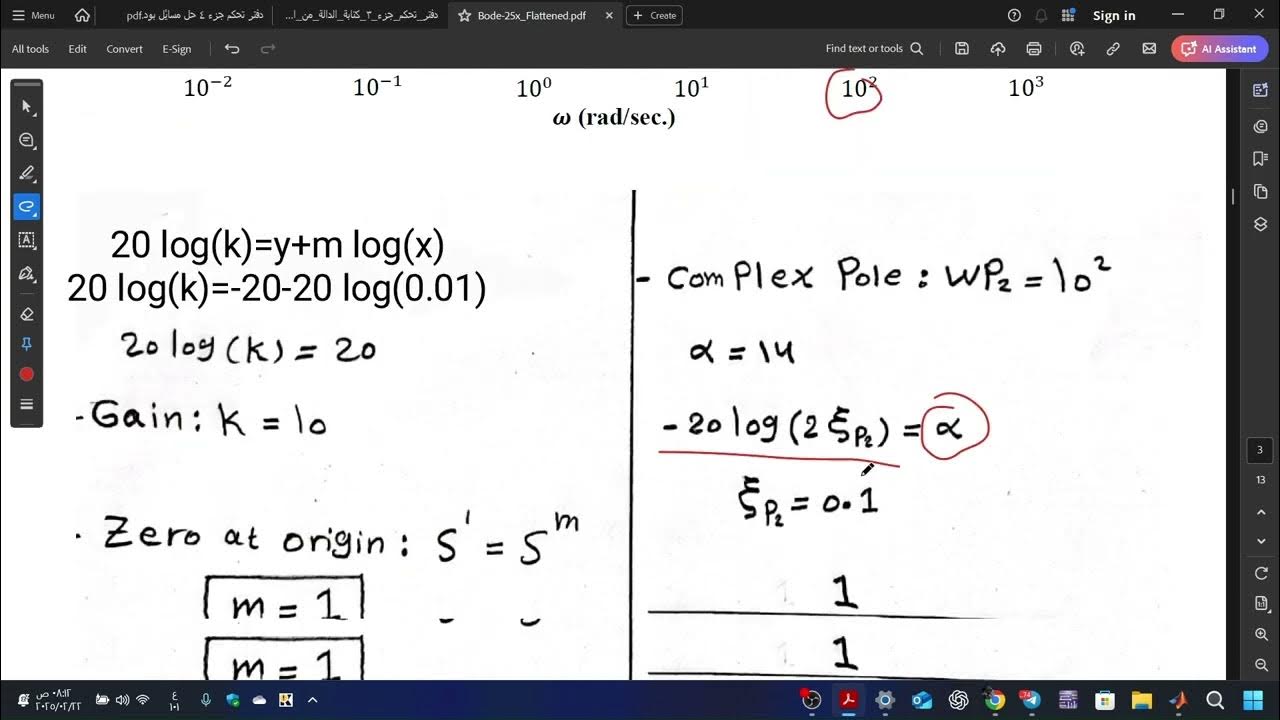 Menu
دفتر تحكم جزء ٤ حل مسائل بود.pdf
دفتر_تحكم_جزء_٣_كتابة_الدالة_من_ا...
Bode-25x_Flattened.pdf
Create
Sign in
All tools Edit Convert E-Sign
Find text or tools
AI Assistant
10⁻² 10⁻¹ 10⁰ 10¹ 10² 10³
ω (rad/sec.)
20 log(k)=y+m log(x)
20 log(k)=-20-20 log(0.01)
20 log(k) = 20
- Gain: K = 10
. Zero at origin: S' = S^m
m = 1
m = 1
- Complex Pole : WP₂ = 10²
α = 14
-20 log(2 ξP₂) = α
ξP₂ = 0.1
1
1
3
13
٠٨:١٢ ص
٢٠٢٥/٠٢/٢٢
ع
١٠١
74